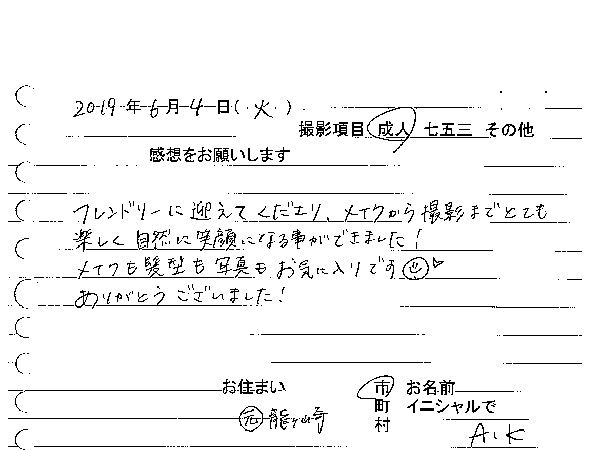 2019年6月4日(火)
撮影項目 成人 七五三 その他
感想をお願いします
フレンドリーに迎えてくださり、メイクから撮影までとても
楽しく自然に笑顔になる事ができました!
メイクも髪型も写真もお気に入りです♡
ありがとうございました!
お住まい 市 お名前
町 イニシャルで
村
元 龍ヶ崎
A.K